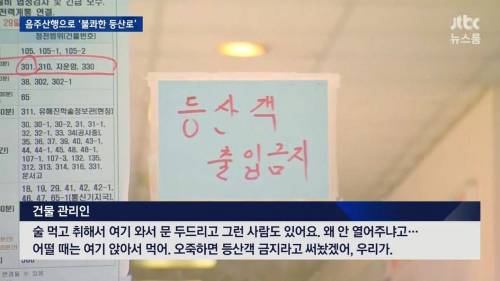 음주산행으로 '불콰한 등산로'
jtbc
뉴스룸
정전범위(건물번호)
105, 105-1, 105-2
301, 310, 자운암, 330
38, 302, 302-1
65
311, 유해진학술정보관(현장)
30, 30-1, 30-2, 31, 31-1,
32, 32-1, 33, 34(공사중),
35, 36, 37, 39, 40, 43-1,
44, 44-1, 45, 48, 105-1,
107-1, 107-3, 132, 135,
312, 313, 314, 316, 331,
문서고
18, 19, 29, 41, 42, 42-1,
등산객
출입금지
건물 관리인
술 먹고 취해서 여기 와서 문 두드리고 그런 사람도 있어요. 왜 안 열어주냐고…
어떨 때는 여기 앉아서 먹어. 오죽하면 등산객 금지라고 써놨겠어, 우리가.